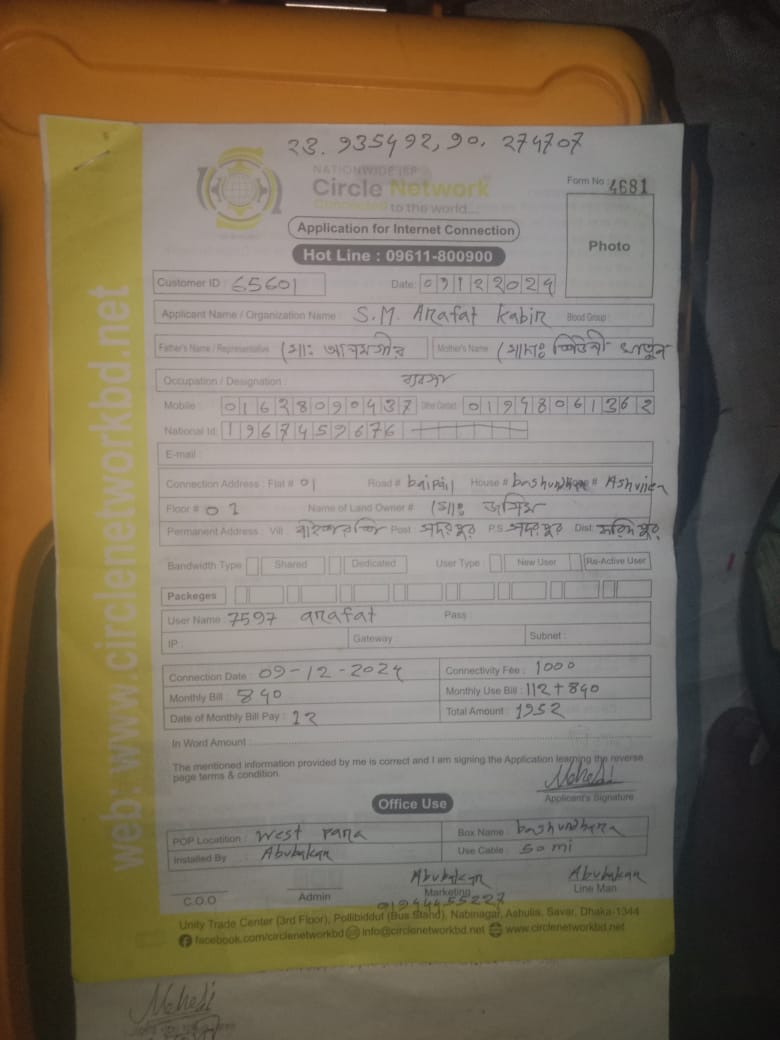 23.935492, 90.274707
NATIONWIDE ISP
Circle Network
Connected to the world...
Form No : 4681
Application for Internet Connection
Photo
Hot Line : 09611-800900
Customer ID : 65601 Date: 09122024
Applicant Name / Organization Name : S.M. Arafat Kabir Blood Group :
Father's Name / Representative Mother's Name
Occupation / Designation : ব্যবসা
Mobile : 01628090437 Other Contact : 01948061362
National Id: 1967459676
E-mail :
Connection Address : Flat # 01 Road # baipail House # bashundhara # Ashulia
Floor # 01 Name of Land Owner # মোঃ জসিম
Permanent Address : Vill Post সদরপুর P.S সদরপুর Dist ফরিদপুর
Bandwidth Type Shared Dedicated User Type New User Re-Active User
Packeges
User Name : 7597 arafat Pass :
IP : Gateway : Subnet :
Connection Date : 09-12-2024 Connectivity Fee : 1000
Monthly Bill : 840 Monthly Use Bill : 112+840
Date of Monthly Bill Pay : 12 Total Amount : 1952
In Word Amount
The mentioned information provided by me is correct and I am signing the Application learning the reverse
page terms & condition.
Mehedi
Applicant's Signature
Office Use
POP Locatition : West Para Box Name : bashundhara
Installed By : Abubakar Use Cable : 50 mi
Abubakar Abubakar
C.O.O Admin Marketing Line Man
01944455227
Unity Trade Center (3rd Floor), Pollibiddut (Bus Stand), Nabinagar, Ashulia, Savar, Dhaka-1344
facebook.com/circlenetworkbd info@circlenetworkbd.net www.circlenetworkbd.net
web: www.circlenetworkbd.net
Mehedi